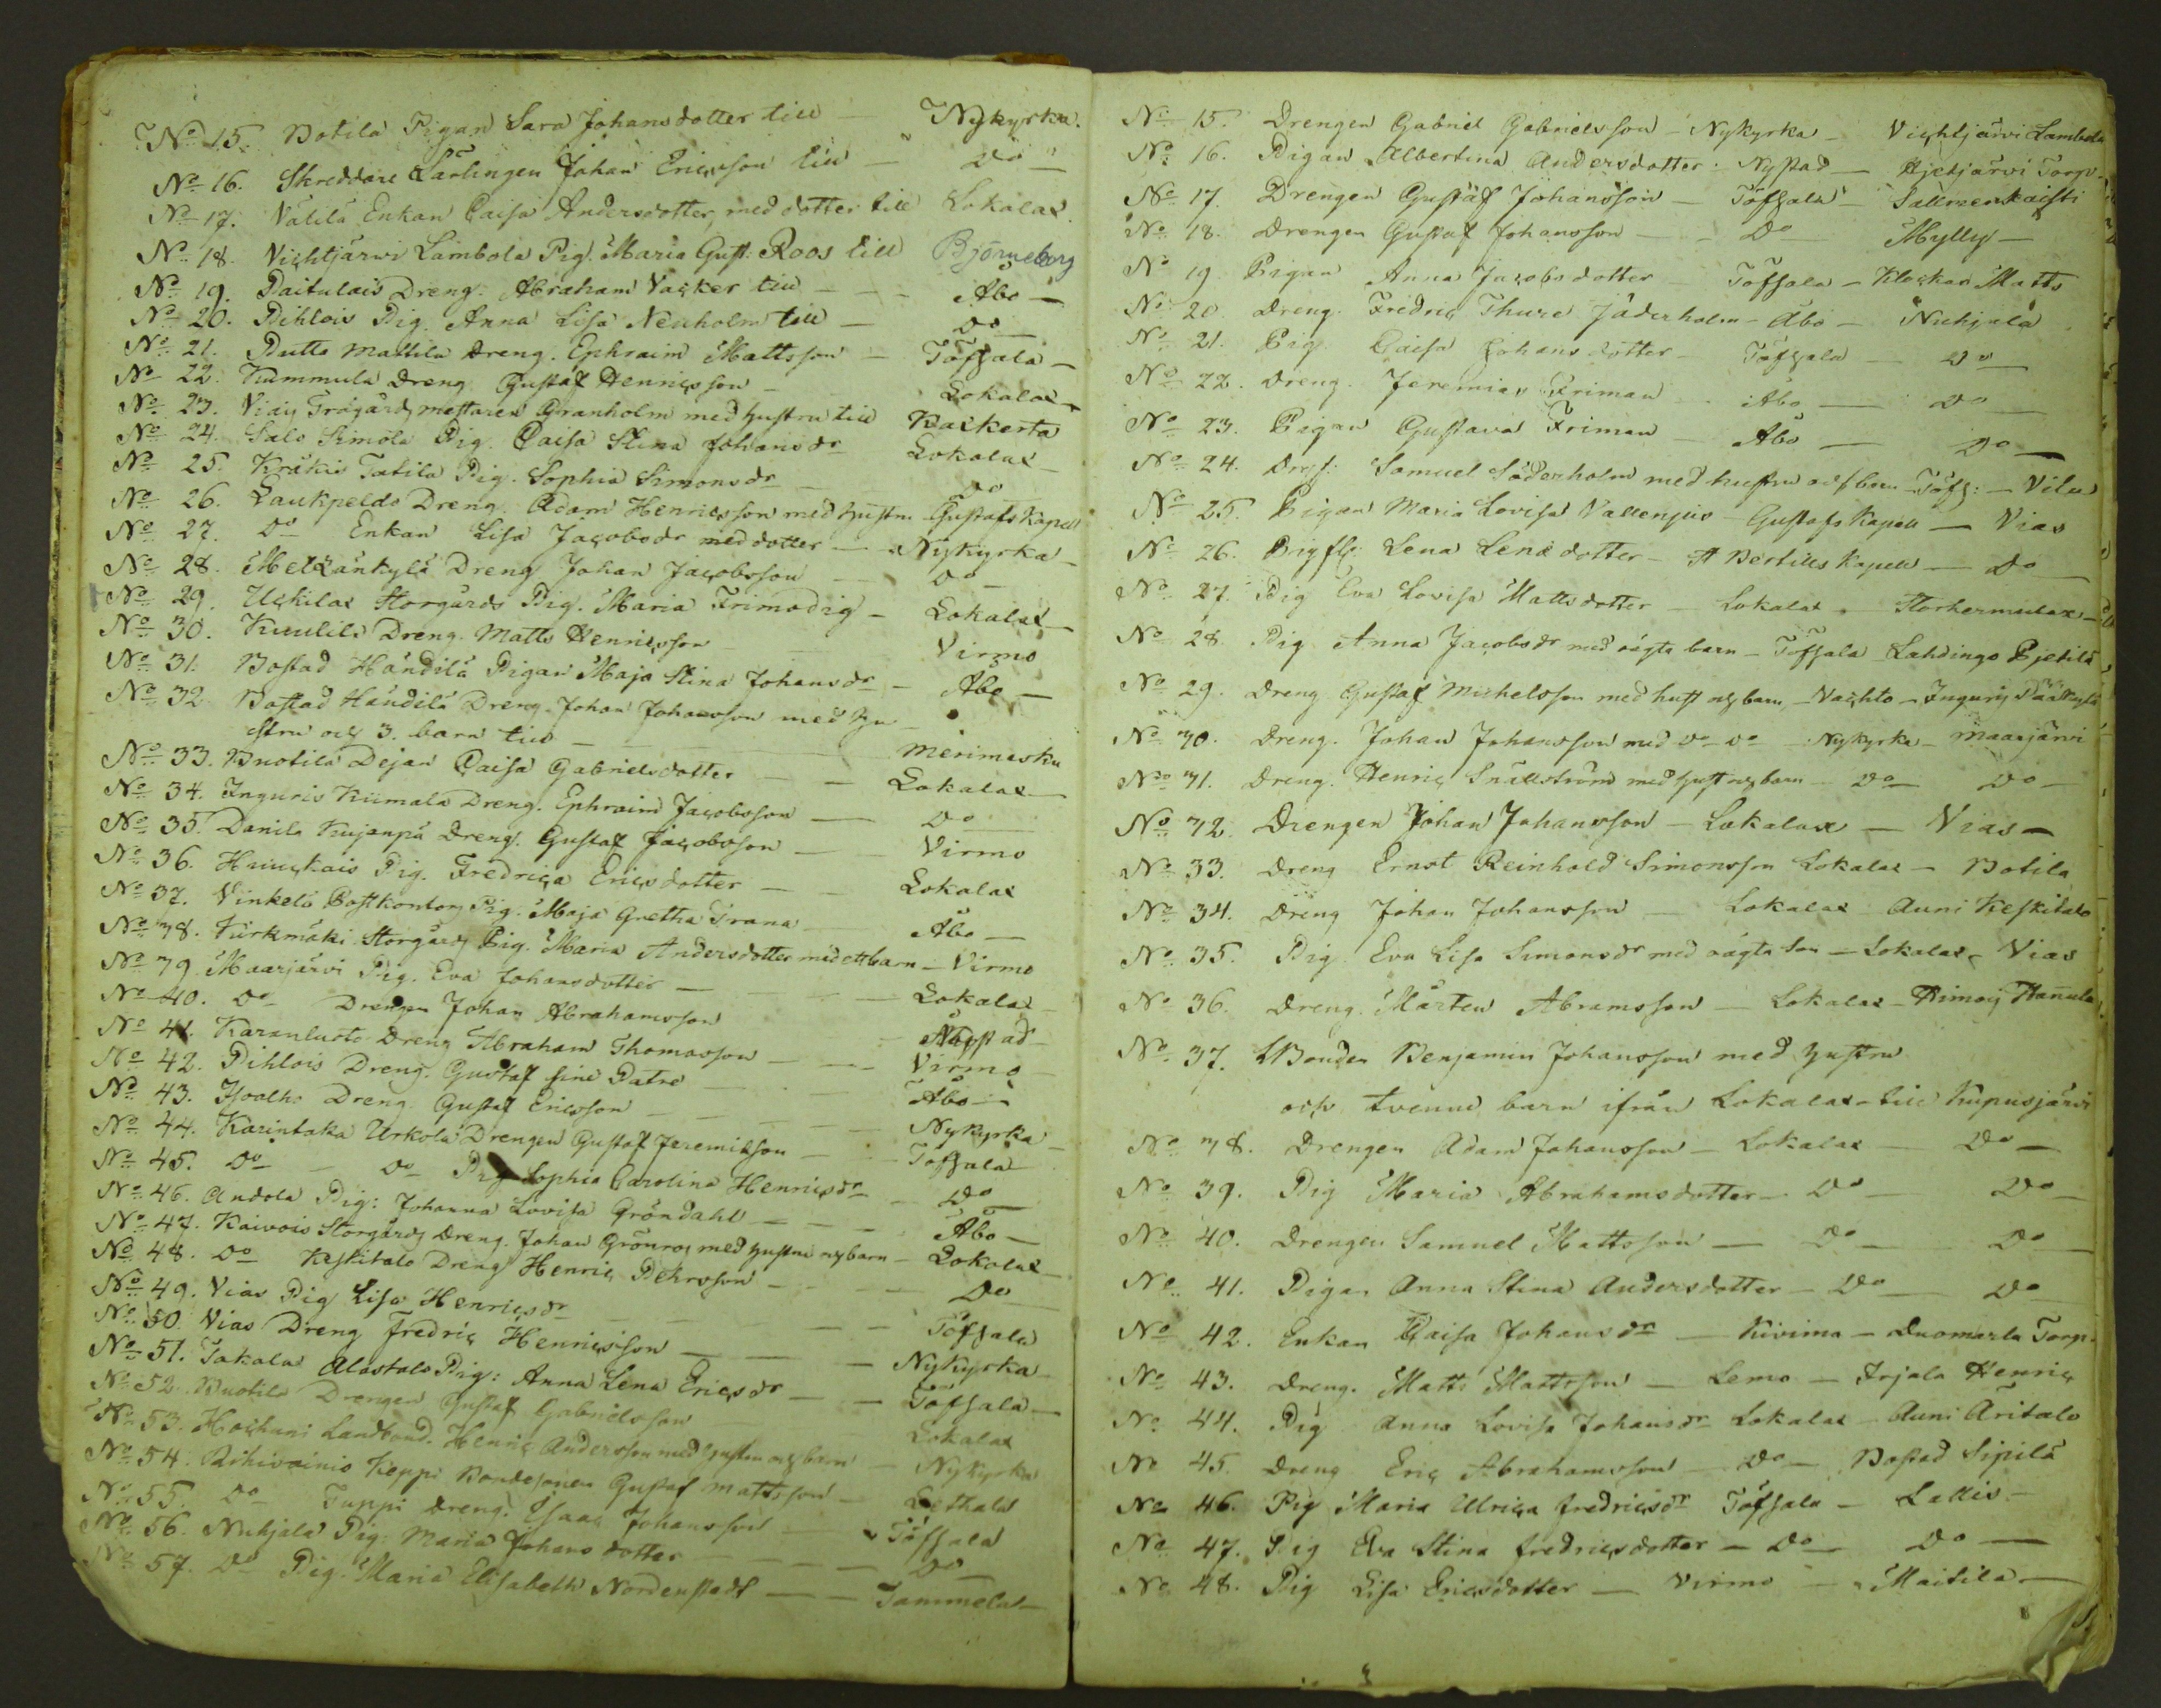 No 15. Botila Pigan Sara Johansdotter till Nykyrka.
No 16. Skreddare Lärlingen Johan Ericsson till — Do —
No 17. Välilä Enkan Caisa Andersdotter, med dotter till Lokalax.
No 18. Vichtjärwi Lambola Pig. Maria Gust. Roos till Björneborg
No 19. Paitulais Dreng. Abraham Vacker till — Åbo —
No 20. Pihlois Pig. Anna Lisa Neuholm till — Do —
No 21. Putto Mattila Dreng. Ephraim Mattsson — Töfsala —
No 22. Kummula Dreng Gustaf Henricsson — Lokalax —
No 23. Viais Trägårdsmestaren Granholm med hustru till Kaskerta
No 24. Salo Simola Pig. Caisa Stina Johansdr Lokalax —
No 25. Kräkis Tatila Pig. Sophia Simonsdr — Do
No 26. Laukpeldo Dreng. Adam Henricsson med hustru Gustafs Kapell
No 27. Do Enkan Lisa Jacobsdr med dotter — Nykyrka —
No 28. Metzänkylä Dreng Johan Jacobsson — Do —
No 29. Uckilax Storgårds Pig. Maria Frimodig — Lokalax —
No 30. Kuulila Dreng. Matts Henricsson Virmo
No 31. Bostad Händilä Pigan Maja Stina Johansdr — Åbo —
No 32. Bostad Händilä Dreng. Johan Johansson med hu-
stru och 3. barn till — Merimasku
No 33. Buotila Pejan Caisa Gabrielsdotter — Lokalax —
No 34. Inguris Kiimala Dreng. Ephraim Jacobsson — Do
No 35. Danila Kujanpä Dreng. Gustaf Jacobsson — Virmo
No 36. Huuckais Pig. Fredrica Ericsdotter — Lokalax
No 37. Vinkelä Postkontor Pig. Maja Gretha Trana Åbo —
No 38. Kirkmäki Storgårds Pig. Maria Andersdotter med ett barn — Virmo
No 39. Maarjärvi Pig. Eva Johansdotter — Lokalax —
No 40. Do Drengen Johan Abrahamsson Nystad —
No 41. Karanluoto Dreng Abraham Thomasson — Virmo —
No 42. Pihlois Dreng. Gustaf sine Patre — Åbo —
No 43. Isoalho Dreng Gustaf Ericsson — Nykyrka —
No 44. Karintaka Urkola Drengen Gustaf Jeremiæson — Töfsala
No 45. Do — Do Pig Sophia Carolina Henricsdr — Do —
No 46. Andola Pig: Johanna Lovisa Gröndahl — Åbo —
No 47. Kaivois Storgårds Dreng. Johan Grönros med hustru och barn — Lokalax —
No 48. Do Keskitalo Dreng Henric Pehrsson — Do
No 49. Vias Pig Lisa Henricsdr — Töfsala
No 50. Vias Dreng Fredric Henricsson — Nykyrka —
No 51. Takala Alastalo Pig: Anna Lena Ericsdr — Töfsala —
No 52. Buotila Drengen Gustaf Gabrielsson — Lokalax
No 53. Hochani Landbond. Henric Andersson med hustru och barn — Nykyrka
No 54. Rihivainio Keppi Bondesonen Gustaf Mattsson — Lethala
No 55. Do Tuppi Dreng. Isaac Johansson — Töfsala
No 56. Nuhjala Pig. Maria Johansdotter — Do —
No 57. Do Pig. Maria Elisabeth Nordenstadt — Tammela —
No 15. Drengen Gabriel Gabrielsson — Nykyrka — Vichtjärvi Lambola
No 16. Pigan Albertina Andersdotter. Nystad — Hjetjärvi Torp.
No 17. Drengen Gustaf Johansson — Töfsala — Sallmenkaisti
No 18. Drengen Gustaf Johansson — Do Mylly —
No 19. Pigan Anna Jacobsdotter Töfsala — Klockar Matts
No 20. Dreng. Fredric Thure Jäderholm — Åbo — Nuhjala
No 21. Pig. Caisa Johansdotter — Töfsala — Do
No 22. Dreng. Jeremias Friman Åbo — Do —
No 23. Pigan Gustava Friman — Åbo — Do —
No 24. Samuel Söderholm med hustru och barn — Töfs: — Vilu
No 25. Pigan Maria Lovisa Vallenjus — Gustafs Kapell — Vias
No 26. Lena Lenædotter — St Bertills Kapell — Do
No 27. Pig Eva Lovisa Mattsdotter — Lokalax — Storhermulax —
No 28. Pig Anna Jacobsdr med oägta barn — Töfsala — Lahdingo Pjetilä
No 29. Dreng Gustaf Michelsson med hust och barn, — Vachto — Inguris
No 30. Dreng. Johan Johansson med Do Do — Nykyrka — Maarjärvi
No 31. Dreng. Henric Snällström med hust och barn — Do — Do —
No 32. Drengen Johan Johansson — Lokalax — Vias —
No 33. Dreng Ernst Reinhold Simonsson Lokalax — Botila
No 34. Dreng Johan Johansson — Lokalax Auni Keskitalo
No 35. Pig Eva Lisa Simonsdr med oägta son — Lokalax — Vias
No 36. Dreng. Mårten Abramsson — Lokalax — Himois Hannula
No 37. Bonden Benjamin Johansson med hustru
och tvenne barn ifrån Lokalax — till Kupusjärvi
No 38. Drengen Adam Johansson — Lokalax — Do —
No 39. Pig Maria Abrahamsdotter — Do — Do —
No 40. Drengen Samuel Mattsson — Do — Do —
No 41. Pigan Anna Stina Andersdotter — Do — Do
No 42. Enkan Caisa Johansdr — Kivima — Duomarla Torp.
No 43. Dreng. Matts Mattsson — Lemo — Irjala Henric
No 44. Pig Anna Lovisa Johansdr Lokalax — Auni Äritalo
No 45. Dreng Eric Abrahamsson — Do — Bostad Sipilä
No 46. Pig Maria Ulrica Fredricsdr Töfsala — Lallis —
No 47. Pig Eva Stina Fredricsdotter — Do — Do —
No 48. Pig Lisa Ericsdotter — Virmo — Maitila —